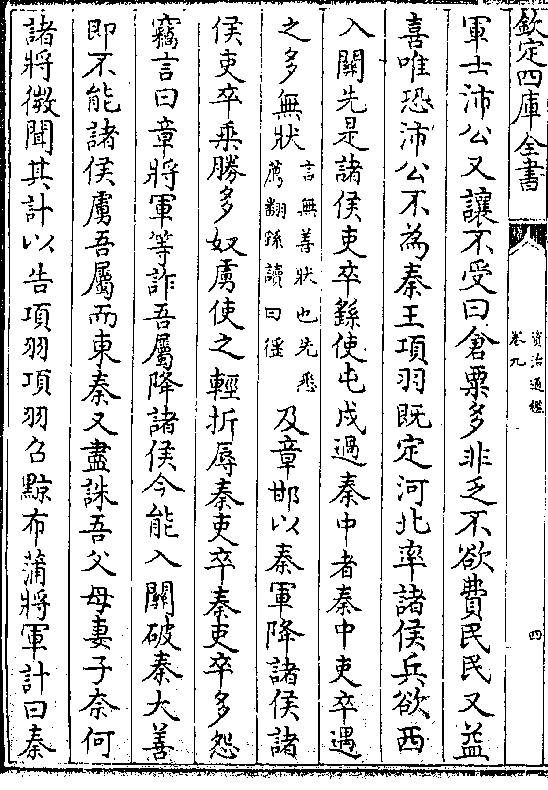 欽定四庫全書
資治通鑑
卷九
四
軍士沛公又讓不受曰倉粟多非乏不欲費民民又益
喜唯恐沛公不為秦王項羽既定河北率諸侯兵欲西
入關先是諸侯吏卒繇使屯戍過秦中者秦中吏卒遇
之多無狀言無善狀也先悉薦翻繇讀曰徭及章邯以秦軍降諸侯諸
侯吏卒乗勝多奴虜使之輕折辱秦吏卒秦吏卒多怨
竊言曰章將軍等詐吾屬降諸侯今能入關破秦大善
即不能諸侯虜吾屬而東秦又盡誅吾父母妻子奈何
諸將微聞其計以告項羽項羽召黥布蒲將軍計曰秦